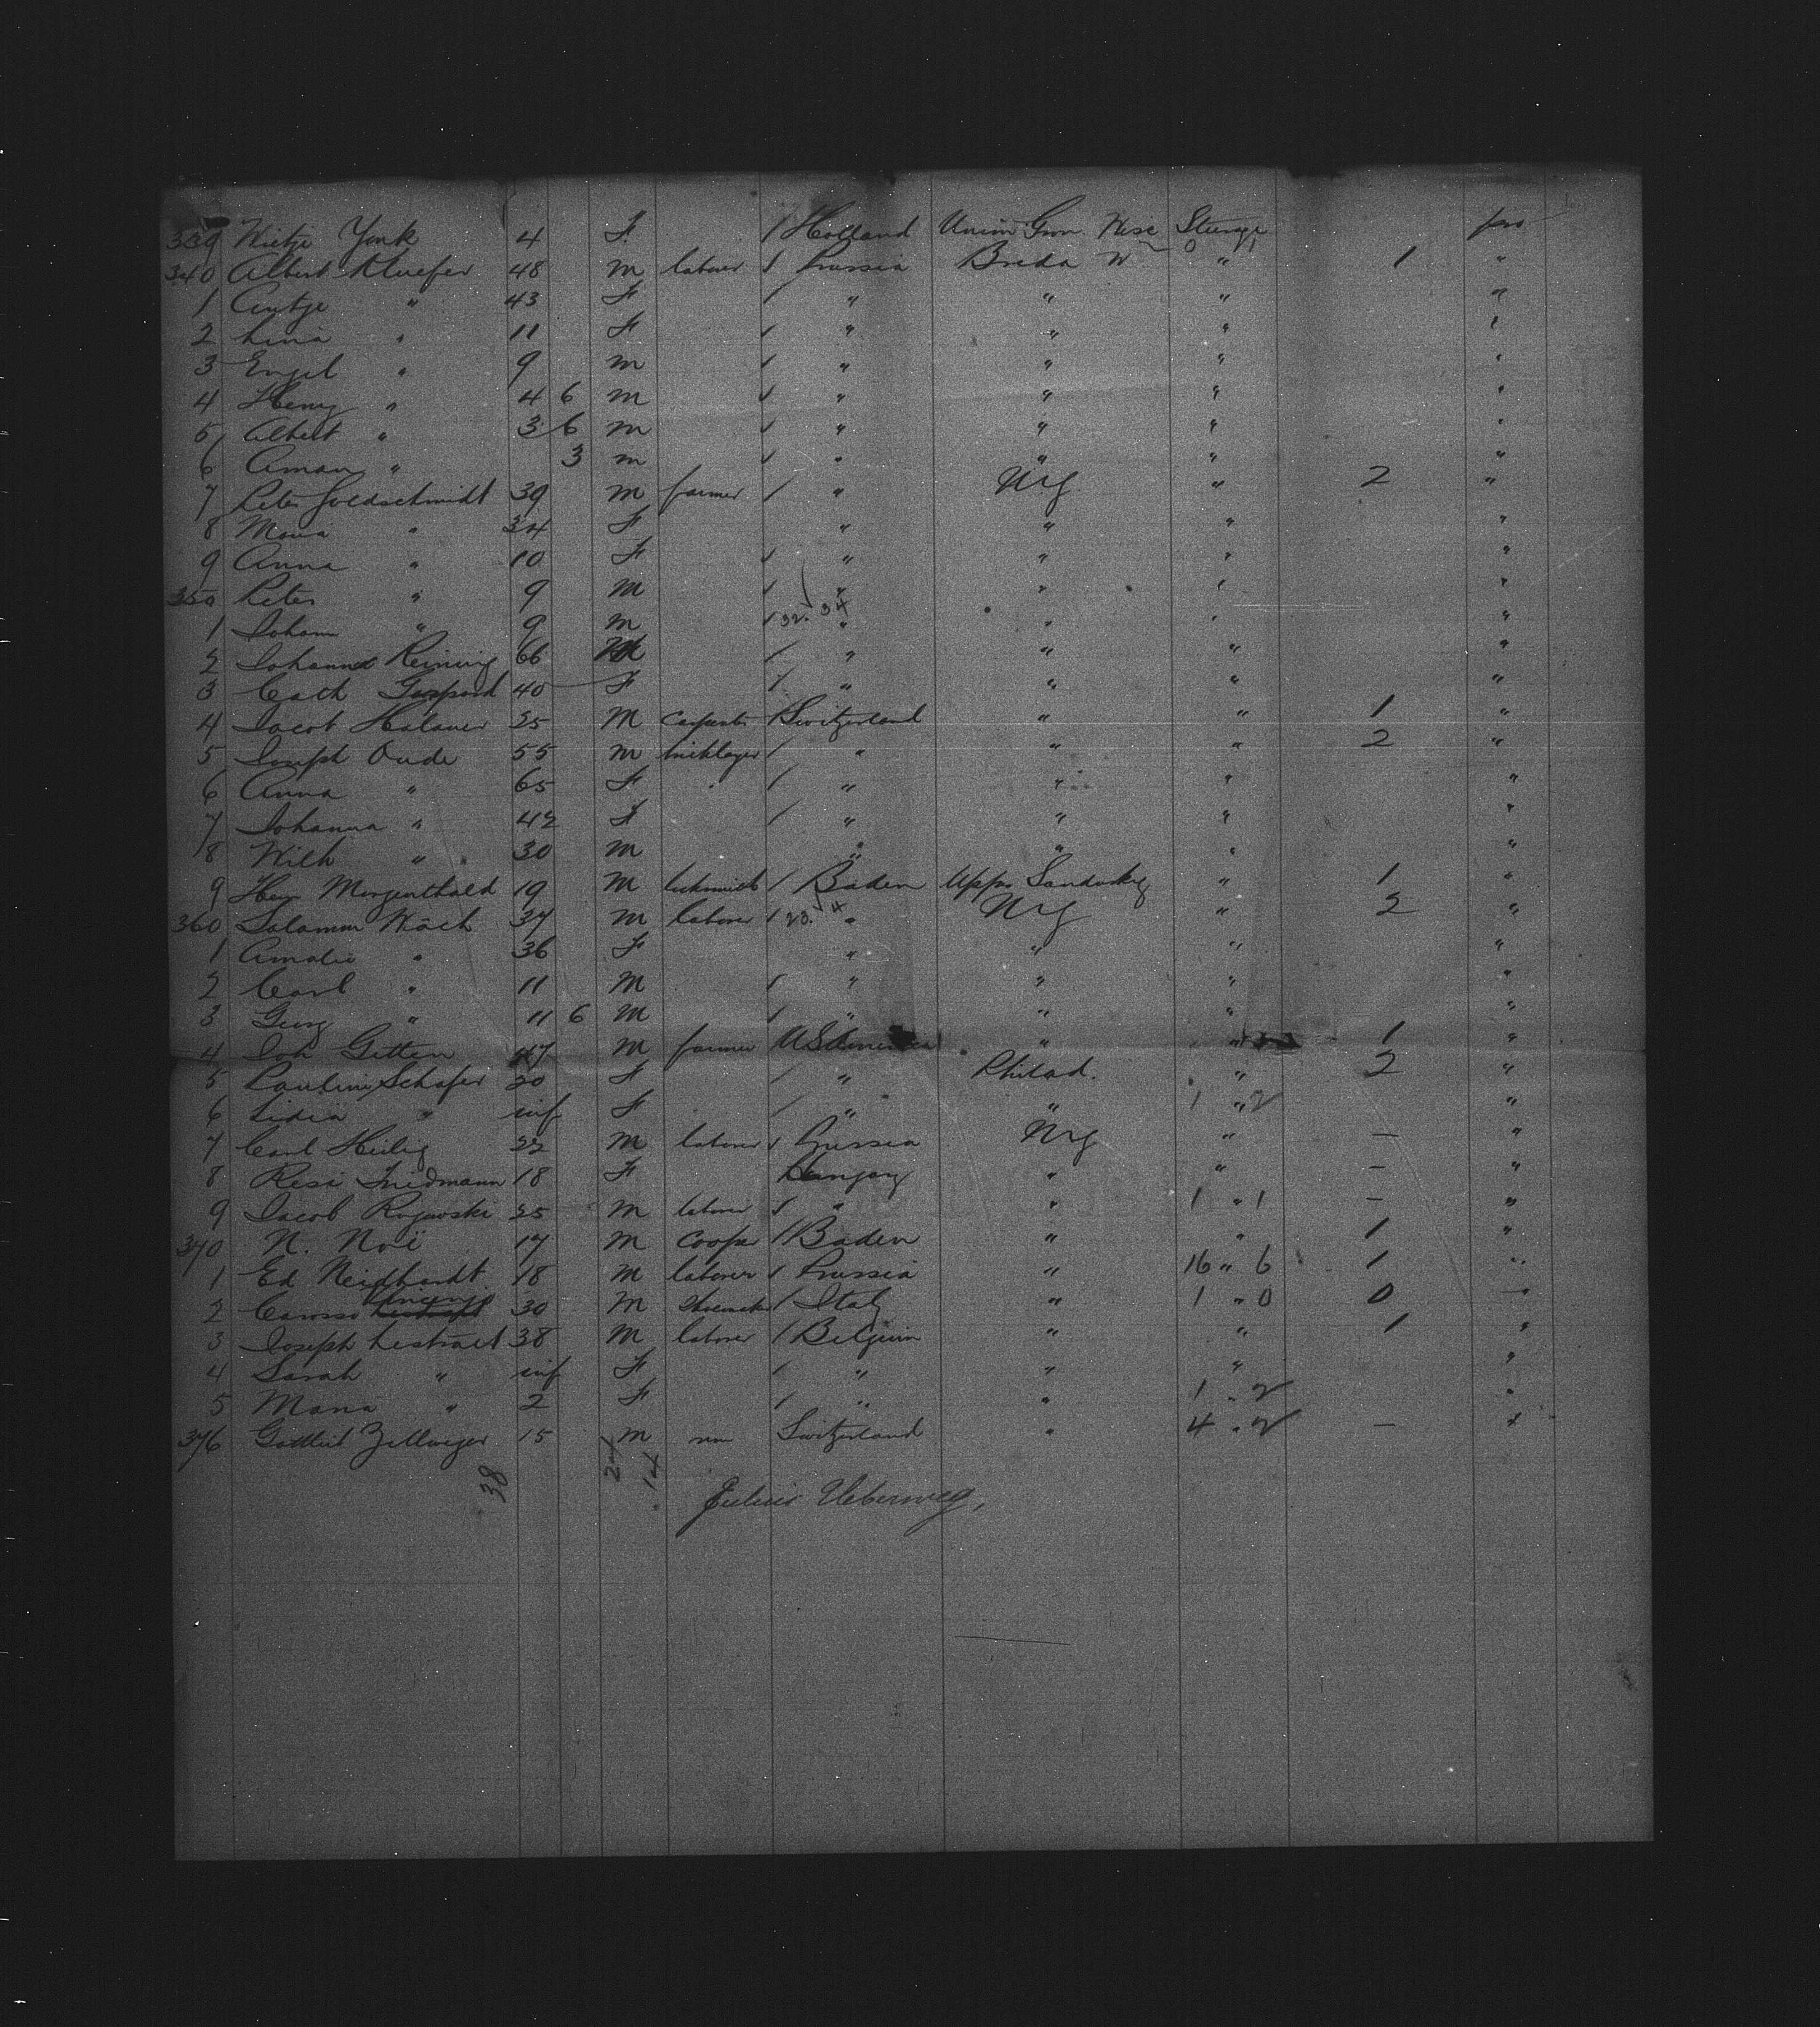 339 Wietje York 4 F. / Holland Union Grov. Wisc Steerage pro
340 Albert Kluefer 48 m laborer / Prussia Breda W " 1 "
1 Antje " 43 F / " " " "
2 Lina " 11 F / " " " "
3 Engel " 9 m / " " " "
4 Henry " 4 6 m / " " " "
5 Albert " 3 6 m / " " " "
6 " 3 m / " " " "
7 Peter Goldschmidt 39 m farmer / " " 2 "
8 Maria " 34 F " " " "
9 Anna " 10 F / " " " "
350 Peter " 9 M / " " " "
1 Johann " 9 m / 32. 34 " " " "
2 Reining 66 M / " " " "
3 Cath 40 F / " " " "
4 Jacob 25 M / Switzerland " " 1 "
5 Joseph Oude 55 m bricklayer / " " " 2 "
6 Anna " 65 F / " " " "
7 Johanna " 42 F / " " " "
8 Wilh " 30 m " " " "
9 Morgenthald 19 M / Baden Upper Sandusky " 1 "
360 Salamon 37 m laborer / 23. 4 " " 2 "
1 Amalie " 36 F " " " "
2 Carl " 11 M / " " " "
3 Georg " 11 6 M / " " " "
4 Joh Getten 47 M farmer U S America " " 1 "
5 Pauline Schafer 20 F / " Philad. " 2 "
6 Lidia " inf F / " " 1 " 2 "
7 Carl Heilig 22 M laborer / Prussia " — "
8 Resi Friedmann 18 F Hungary " " — "
9 Jacob Rojewski 25 m laborer / " " 1 " 1 — "
370 N. Noë 17 M Cooper / Baden " " 1 "
1 Ed Neidhardt 18 M laborer / Prussia " 16 " 6 1 "
2 Carosso 30 M / Italy " 1 " 0 0 "
3 Joseph Lestraet 38 M laborer / Belgium " " 1 "
4 Sarah " inf F / " " " "
5 Maria " 2 F / " " 1 " 2 "
376 Gottlieb Zellweger 15 m Switzerland " 4 " 2 —
38 24 14
Julius Ueberweg,